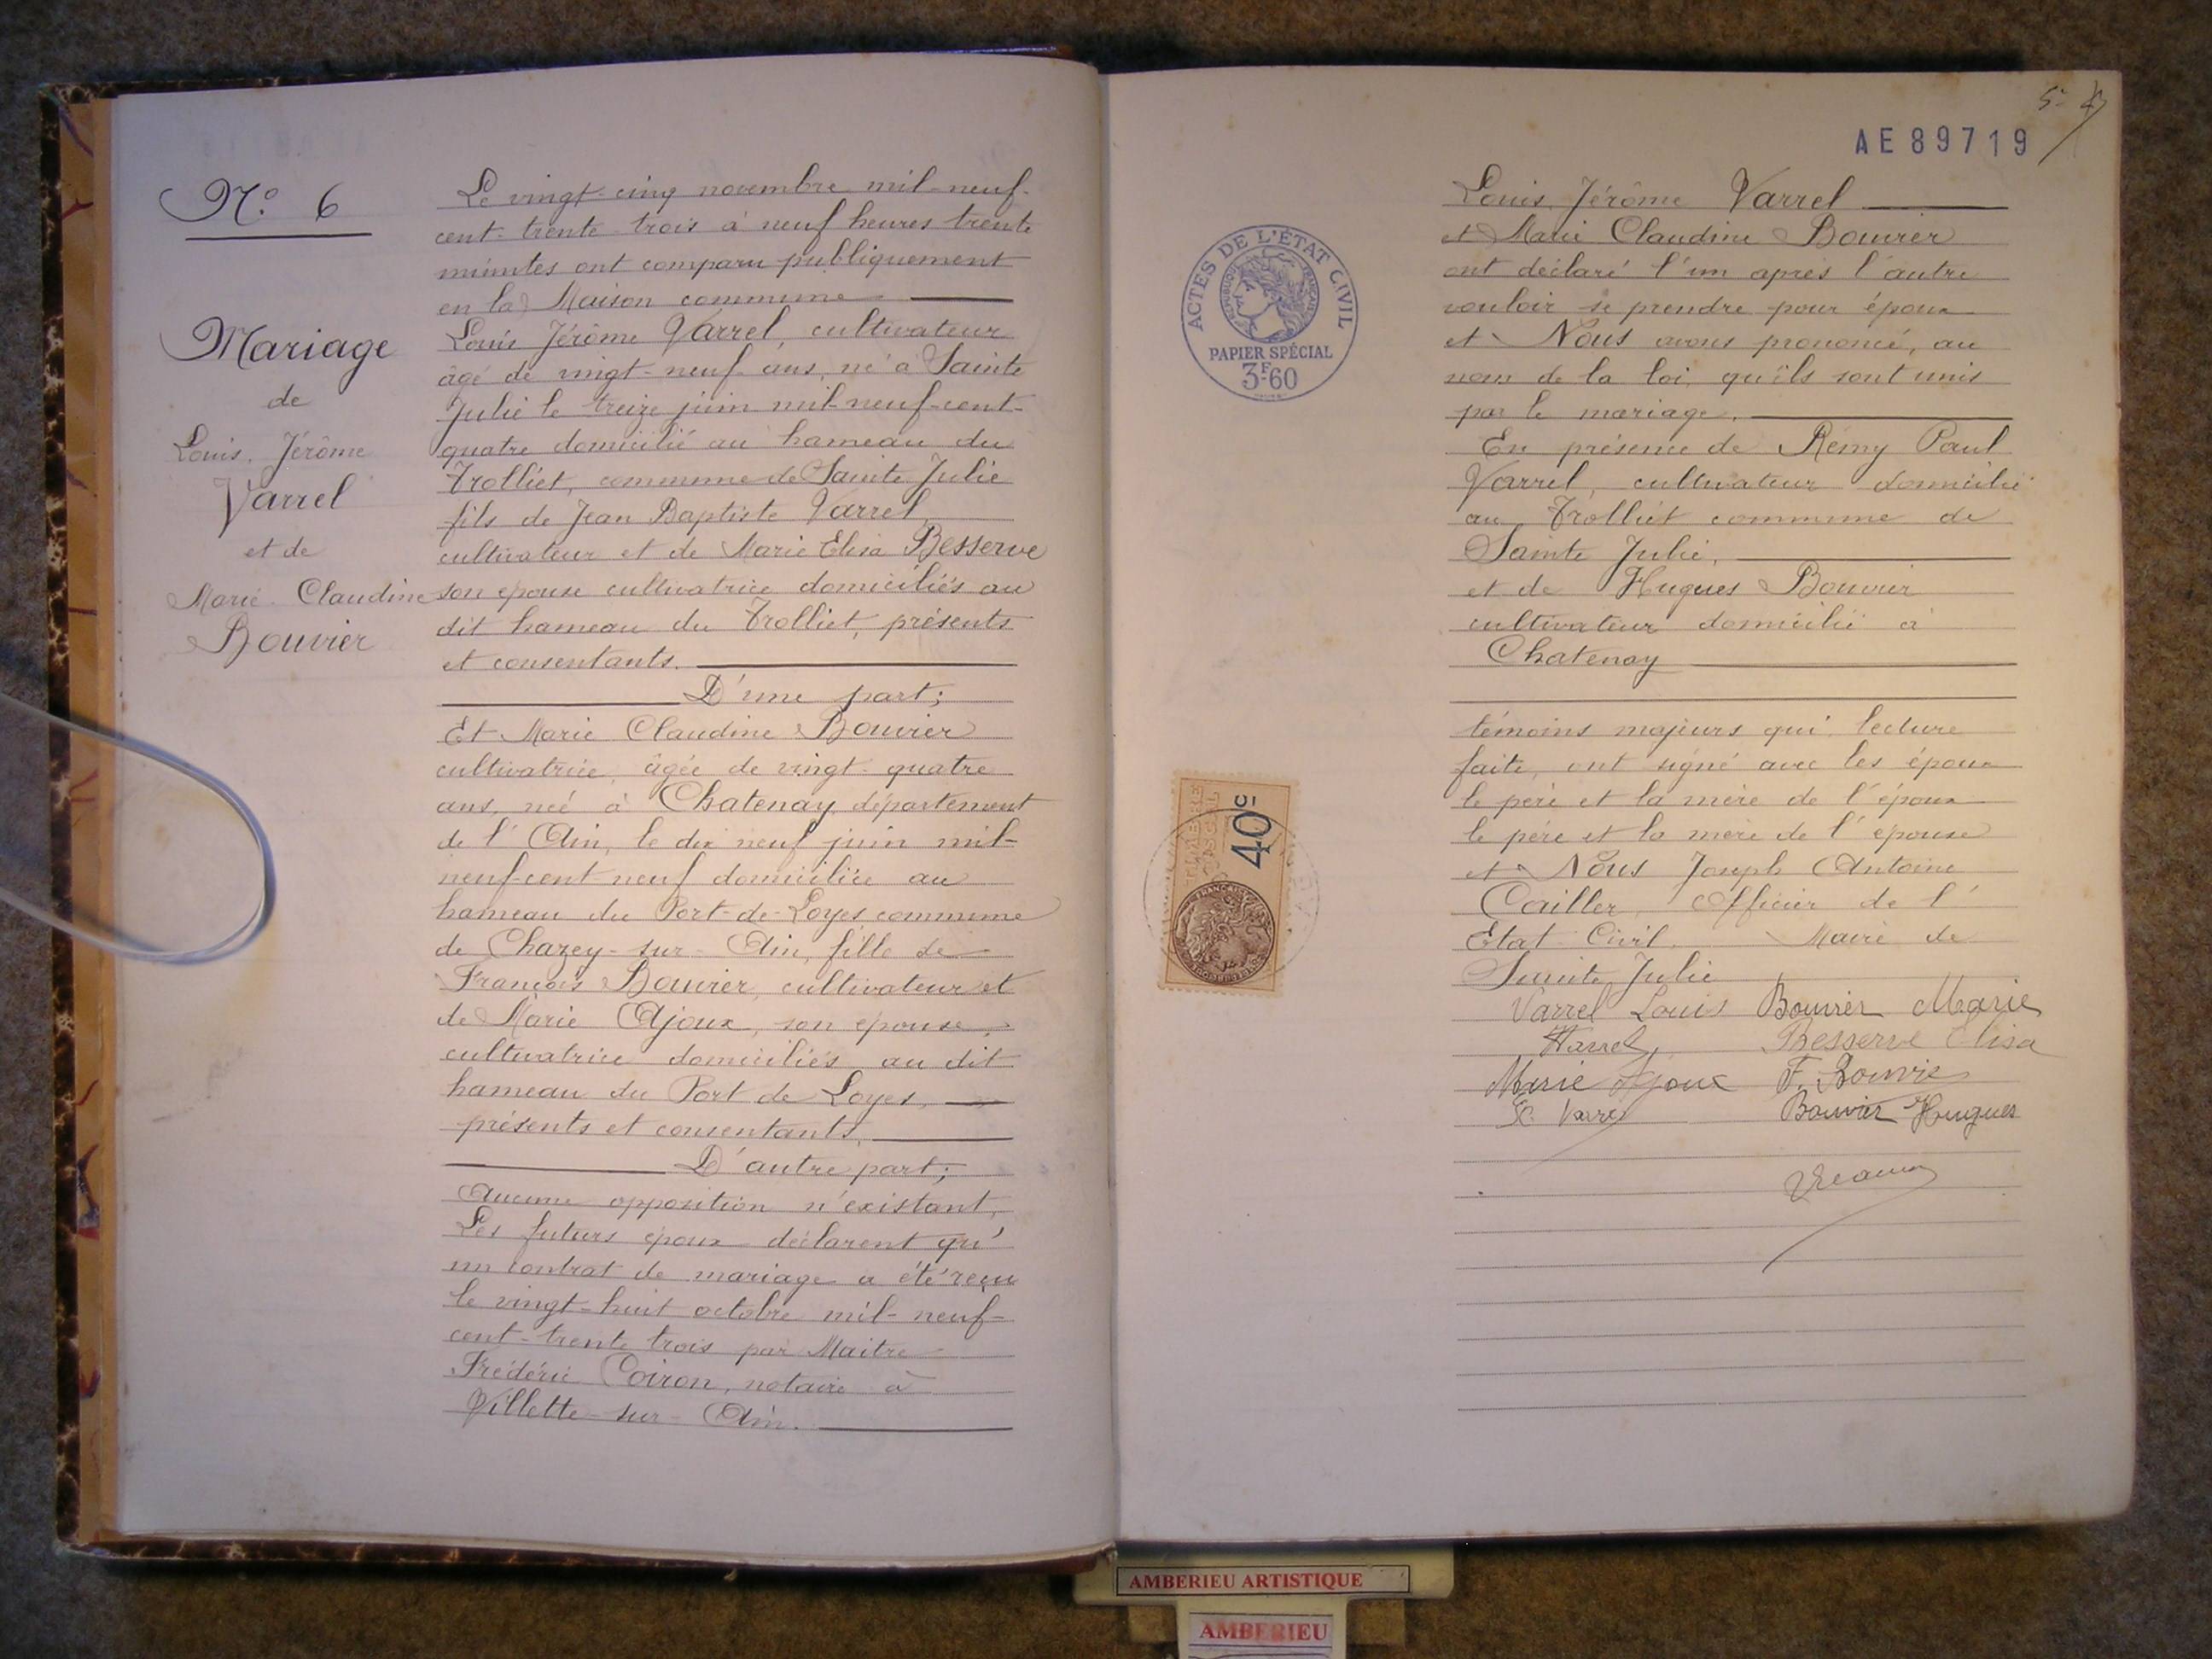 N.º 6
Mariage
de
Louis Jérôme
Varrel
et de
Marie Claudine
Bouvier
Le vingt-cinq novembre mil-neuf-
cent-trente-trois à neuf heures trente
minutes ont comparu publiquement
en la Maison commune
Louis Jérôme Varrel, cultivateur
âgé de vingt-neuf ans, né à Sainte
Julie le treize juin mil-neuf-cent-
quatre domicilié au hameau du
Trolliet, commune de Sainte Julie
fils de Jean Baptiste Varrel,
cultivateur et de Marie Elisa Besserve
son epouse cultivatrice domiciliés au
dit hameau du Trolliet, présents
et consentants.
D'une part;
Et Marie Claudine Bouvier
cultivatrice, âgée de vingt-quatre
ans, née à Chatenay, département
de l'Ain, le dix neuf juin mil-
neuf-cent neuf domiciliée au
hameau du Port-de-Loyes commune
de Chazey-sur-Ain, fille de
François Bouvier, cultivateur et
de Marie Ajoux, son epouse,
cultivatrice domiciliés au dit
hameau du Port de Loyes,
présents et consentants,
D'autre part;
Aucune opposition n'existant,
Les futurs époux déclarent qu'
un contrat de mariage a été reçu
le vingt-huit octobre mil-neuf-
cent-trente trois par Maitre
Frédéric Coiron, notaire à
Villette-sur-Ain.
AE 89719
ACTES DE L'ÉTAT CIVIL
RÉPUBLIQUE FRANÇAISE
PAPIER SPÉCIAL
3F60
TIMBRE
FISCAL
40c
Louis Jérôme Varrel
et Marie Claudine Bouvier
ont déclaré l'un après l'autre
vouloir se prendre pour époux
et Nous avons prononcé, au
nom de la loi, qu'ils sont unis
par le mariage.
En présence de Rémy Paul
Varrel, cultivateur domicilié
au Trolliet commune de
Sainte Julie,
et de Hugues Bouvier
cultivateur domicilié à
Chatenay
témoins majeurs qui, lecture
faite, ont signé avec les époux
le père et la mère de l'époux
le père et la mère de l'epouse
et Nous Joseph Antoine
Cailler, Officier de l'
Etat Civil, Maire de
Sainte Julie
Varrel Louis Bouvier Marie
Varrel Besserve Elisa
Marie Ajoux F. Bouvie
Varrel Bouvier Hugues
AMBERIEU ARTISTIQUE
AMBERIEU